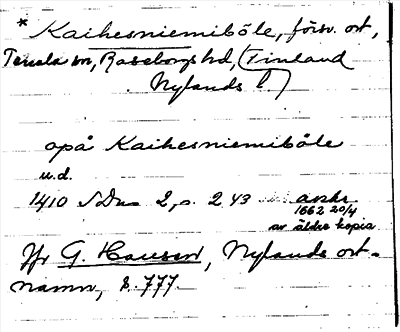 * Kaihesniemiböle, försv. ort,
Tenala sn, Raseborgs hd, (Finland
Nylands l.)
opå Kaihesniemiböle
u.d.
1410 SDns 2, s. 243 avskr
1662 20/4
av äldre kopia
Jfr G. Hausen, Nylands ort-
namn, s. 777.